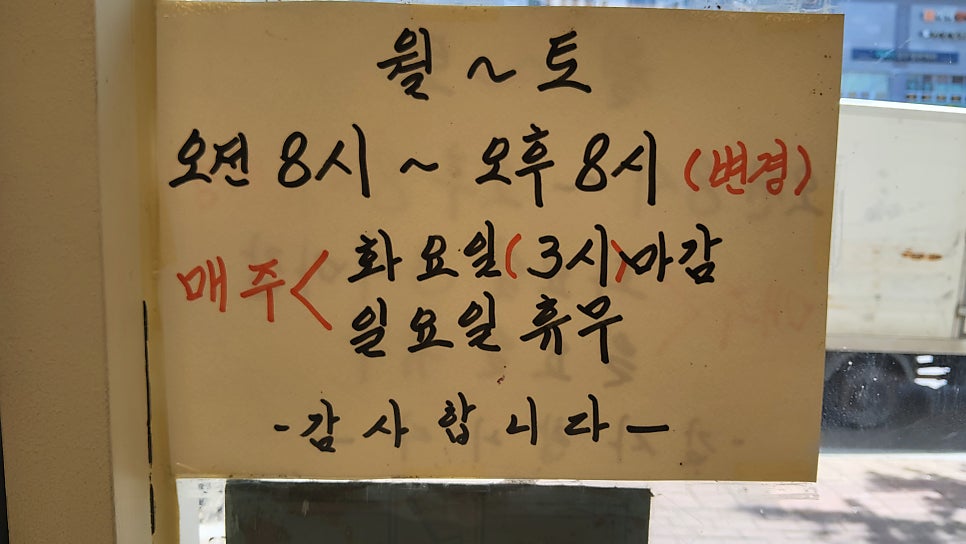 월 ~ 토
오전 8시 ~ 오후 8시 (변경)
매주 < 화요일 (3시) 마감
일요일 휴무
- 감사합니다 -